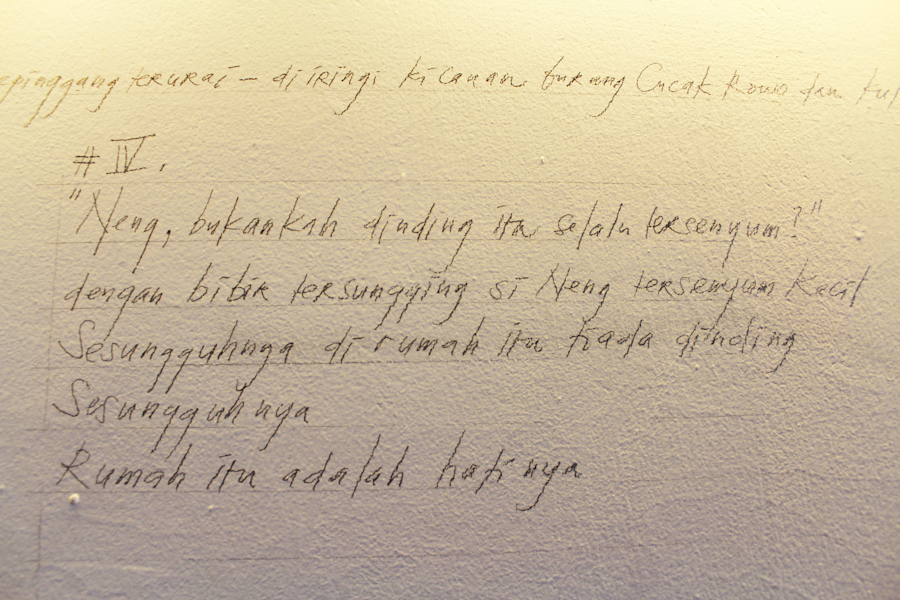 epinggang terurai – diiringi kicauan burung Cucak Rowo dan
# IV.
"Neng, bukankah dinding itu selalu tersenyum?"
dengan bibir tersungging si Neng tersenyum kecil
Sesungguhnya di rumah itu tiada dinding
Sesungguhnya
Rumah itu adalah hatinya